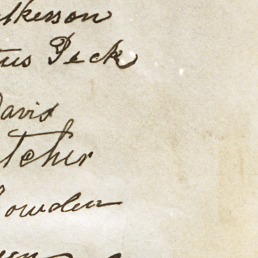 lkerson
tus Peck
Davis
tcher
owden